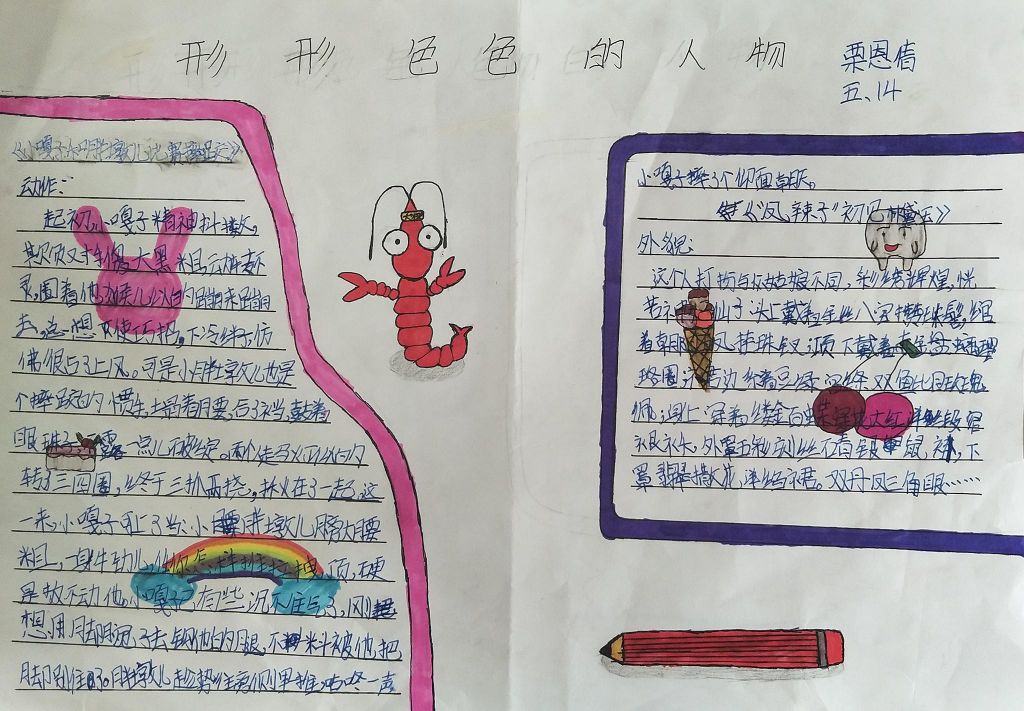 形形色色的人物
栗恩倩
五、14
《小嘎子和胖墩儿比赛摔跤》
动作:
起初,小嘎子精神抖擞,
欺负对手傻大黑粗,动转不
灵,围着他猴儿似的蹦来蹦
去,总想使巧招,下冷绊子,仿
佛很占了上风。可是小胖墩儿也是
个摔跤的惯手,塌着腰,合了裆,鼓着
眼珠子 露一点儿破绽。两个走马灯似的
转了三四圈,终于三抓两挠,揪在了一起。这
一来,小嘎子可上了当:小胖墩儿膀大腰
粗,一身牛劲儿,任你怎样推拉 顶,硬
是扳不动他,小嘎子,有些沉不住气了,刚
想用脚腕子去钩他的腿,不料被他把
脚别住了。胖墩儿趁势往旁侧里推,咕咚一声
小嘎子摔了个仰面朝天。
《"凤辣子"初见林黛玉》
外貌:
这个人打扮与众姑娘不同,彩绣辉煌,恍
若神 仙子:头上戴着金丝八宝攒珠髻,绾
着朝阳 凤挂珠钗,项下戴着赤金盘螭璎
珞圈,裙边系着豆绿 宫绦,双衡比目玫瑰
佩,身上穿着缕金百蝶穿花大红洋缎窄
裉袄,外罩五彩刻丝石青银鼠褂,下
罩翡翠撒花洋绉裙。双丹凤三角眼……